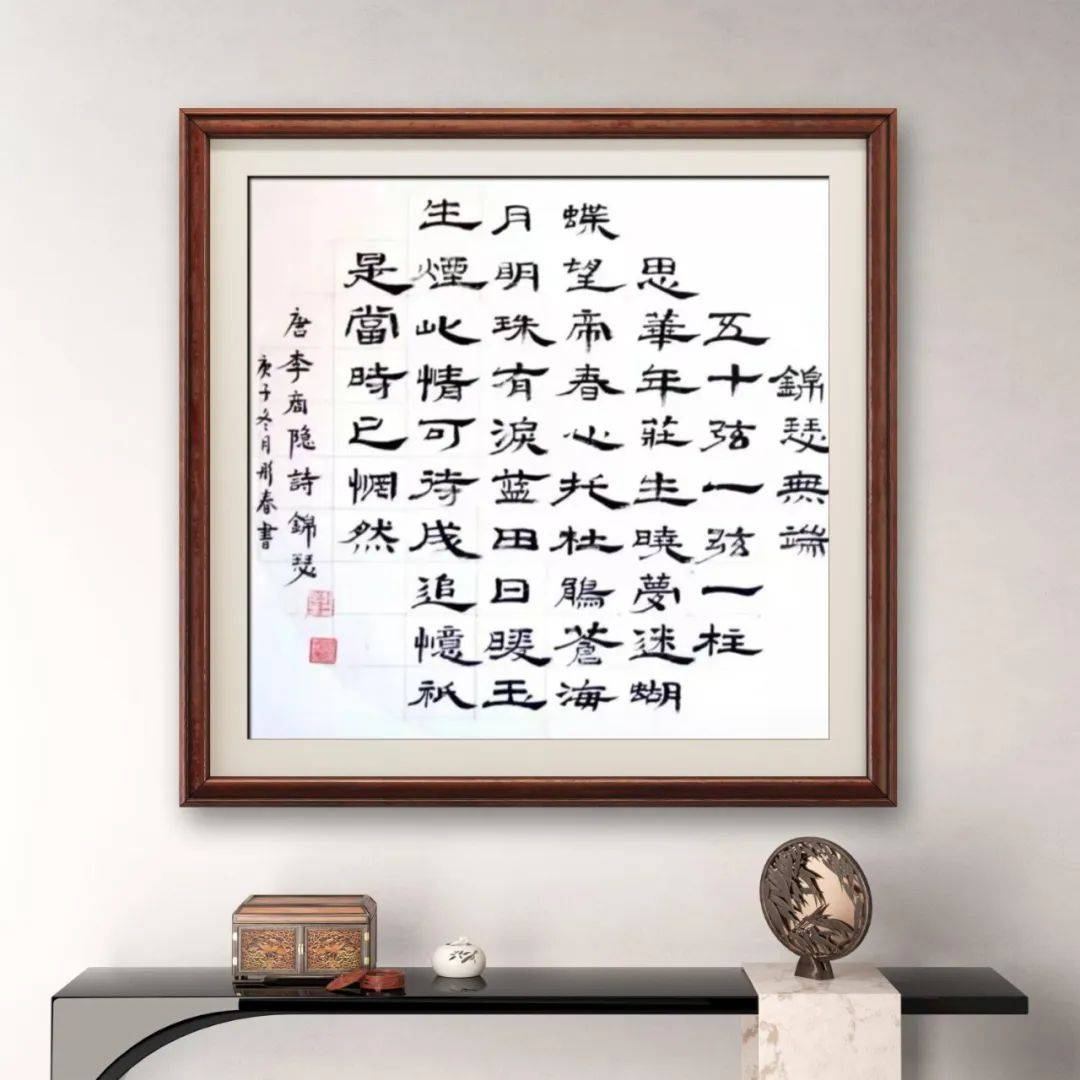 錦瑟無端
五十弦一弦一柱
思華年莊生曉夢迷蝴
蝶望帝春心托杜鵑蒼海
月明珠有淚蓝田日暖玉
生煙此情可待成追憶祇
是當時已惘然
唐李商隐詩錦瑟
庚子冬月彤春書